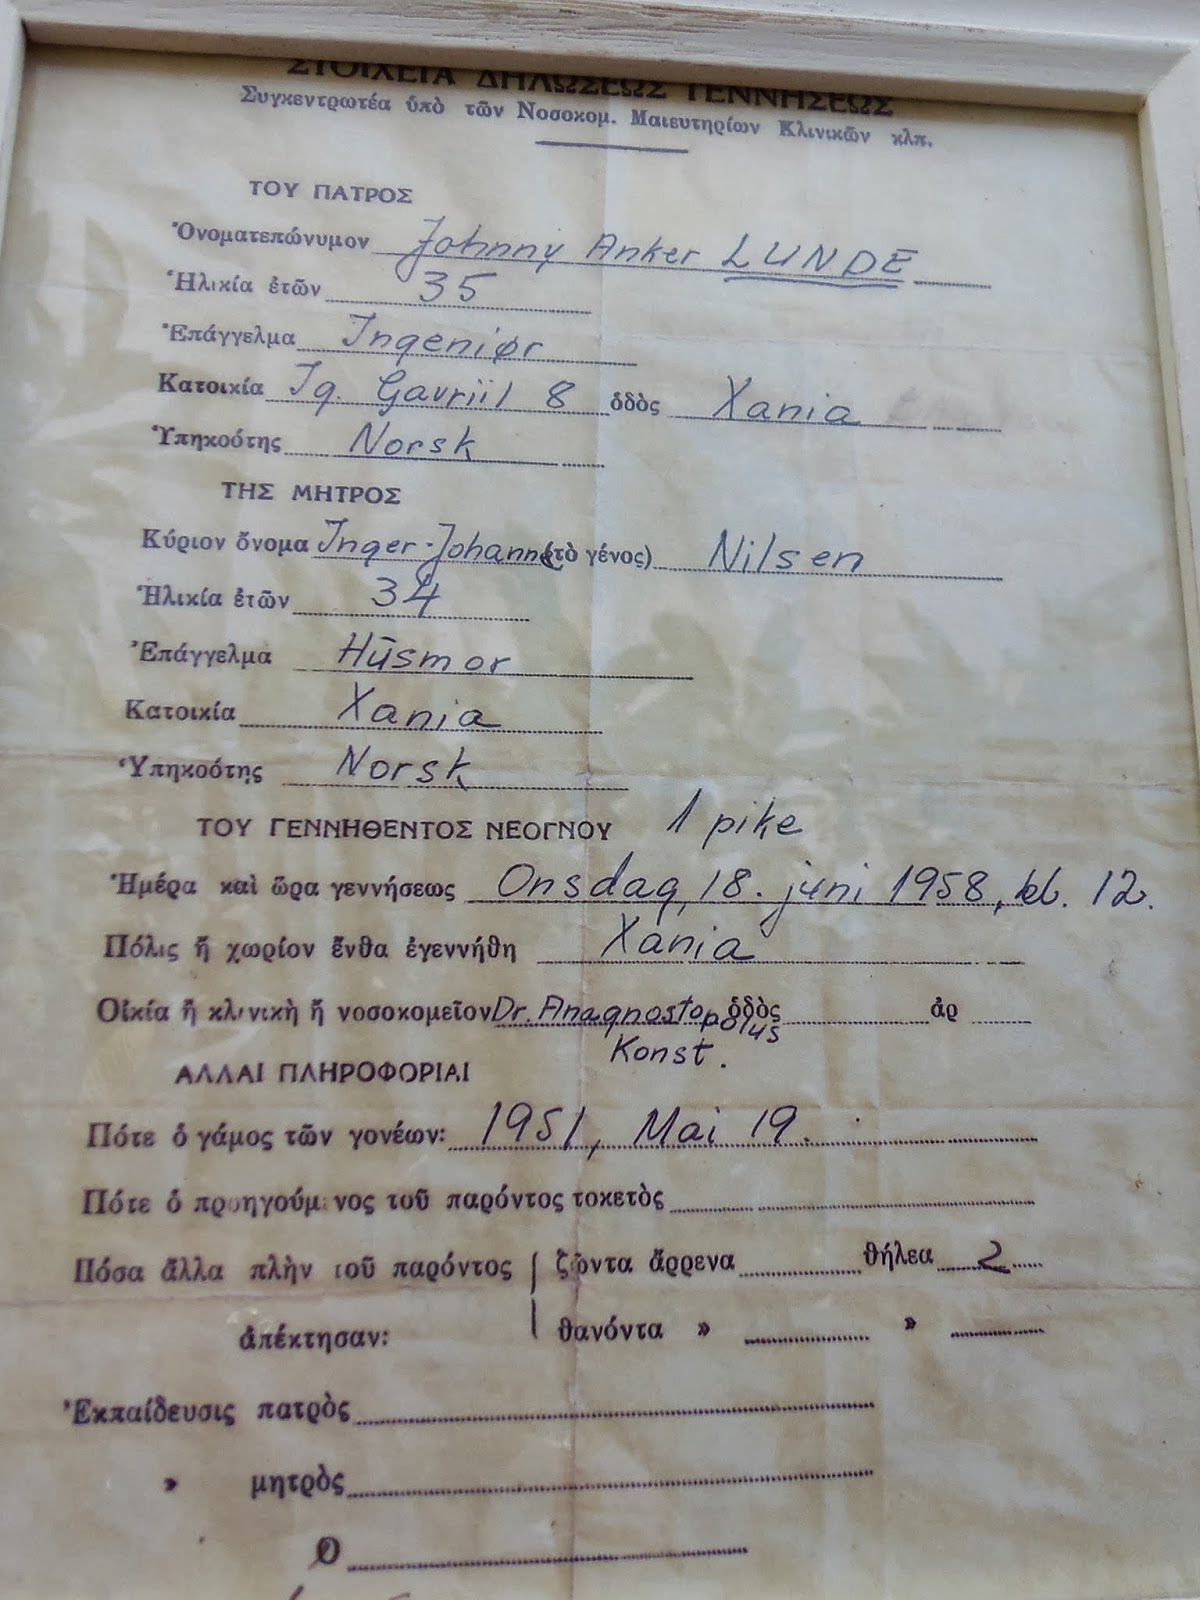 ΣΤΟΙΧΕΙΑ ΔΗΛΩΣΕΩΣ ΓΕΝΝΗΣΕΩΣ
Συγκεντρωτέα ὑπὸ τῶν Νοσοκομ. Μαιευτηρίων Κλινικῶν κλπ.
ΤΟΥ ΠΑΤΡΟΣ
Ὀνοματεπώνυμον Johnny Anker LUNDE
Ἡλικία ἐτῶν 35
Ἐπάγγελμα Ingeniør
Κατοικία Ig. Gavriil 8 ὁδὸς Xania
Ὑπηκοότης Norsk
ΤΗΣ ΜΗΤΡΟΣ
Κύριον ὄνομα Inger-Johanne (τὸ γένος) Nilsen
Ἡλικία ἐτῶν 34
Ἐπάγγελμα Hūsmor
Κατοικία Xania
Ὑπηκοότης Norsk
ΤΟΥ ΓΕΝΝΗΘΕΝΤΟΣ ΝΕΟΓΝΟΥ 1 pike
Ἡμέρα καὶ ὥρα γεννήσεως Onsdag, 18. juni 1958, kl. 12.
Πόλις ἢ χωρίον ἔνθα ἐγεννήθη Xania
Οἰκία ἢ κλινικὴ ἢ νοσοκομεῖον Dr. Anagnostopolus ὁδὸς ἀρ
Konst.
ΑΛΛΑΙ ΠΛΗΡΟΦΟΡΙΑΙ
Πότε ὁ γάμος τῶν γονέων: 1951, Mai 19.
Πότε ὁ προηγούμενος τοῦ παρόντος τοκετὸς
Πόσα ἄλλα πλὴν τοῦ παρόντος ζῶντα ἄρρενα θήλεα 2
ἀπέκτησαν: θανόντα » »
Ἐκπαίδευσις πατρὸς
» μητρὸς
Ο